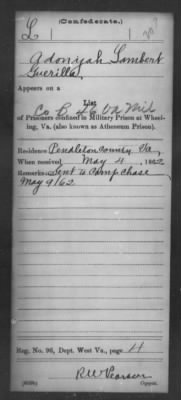 (Confederate.)
L
Adonijah Lambert
Guerilla
Appears on a
List
Co B, 46 Va Mil
of Prisoners confined in Military Prison at Wheel-
ing, Va. (also known as Atheneum Prison).
Residence Pendleton County Va.
When received May 4, 1862
Remarks: Sent to Camp Chase
May 9/62
Reg. No. 96, Dept. West Va., page 4
RW Pearson
Copyist.